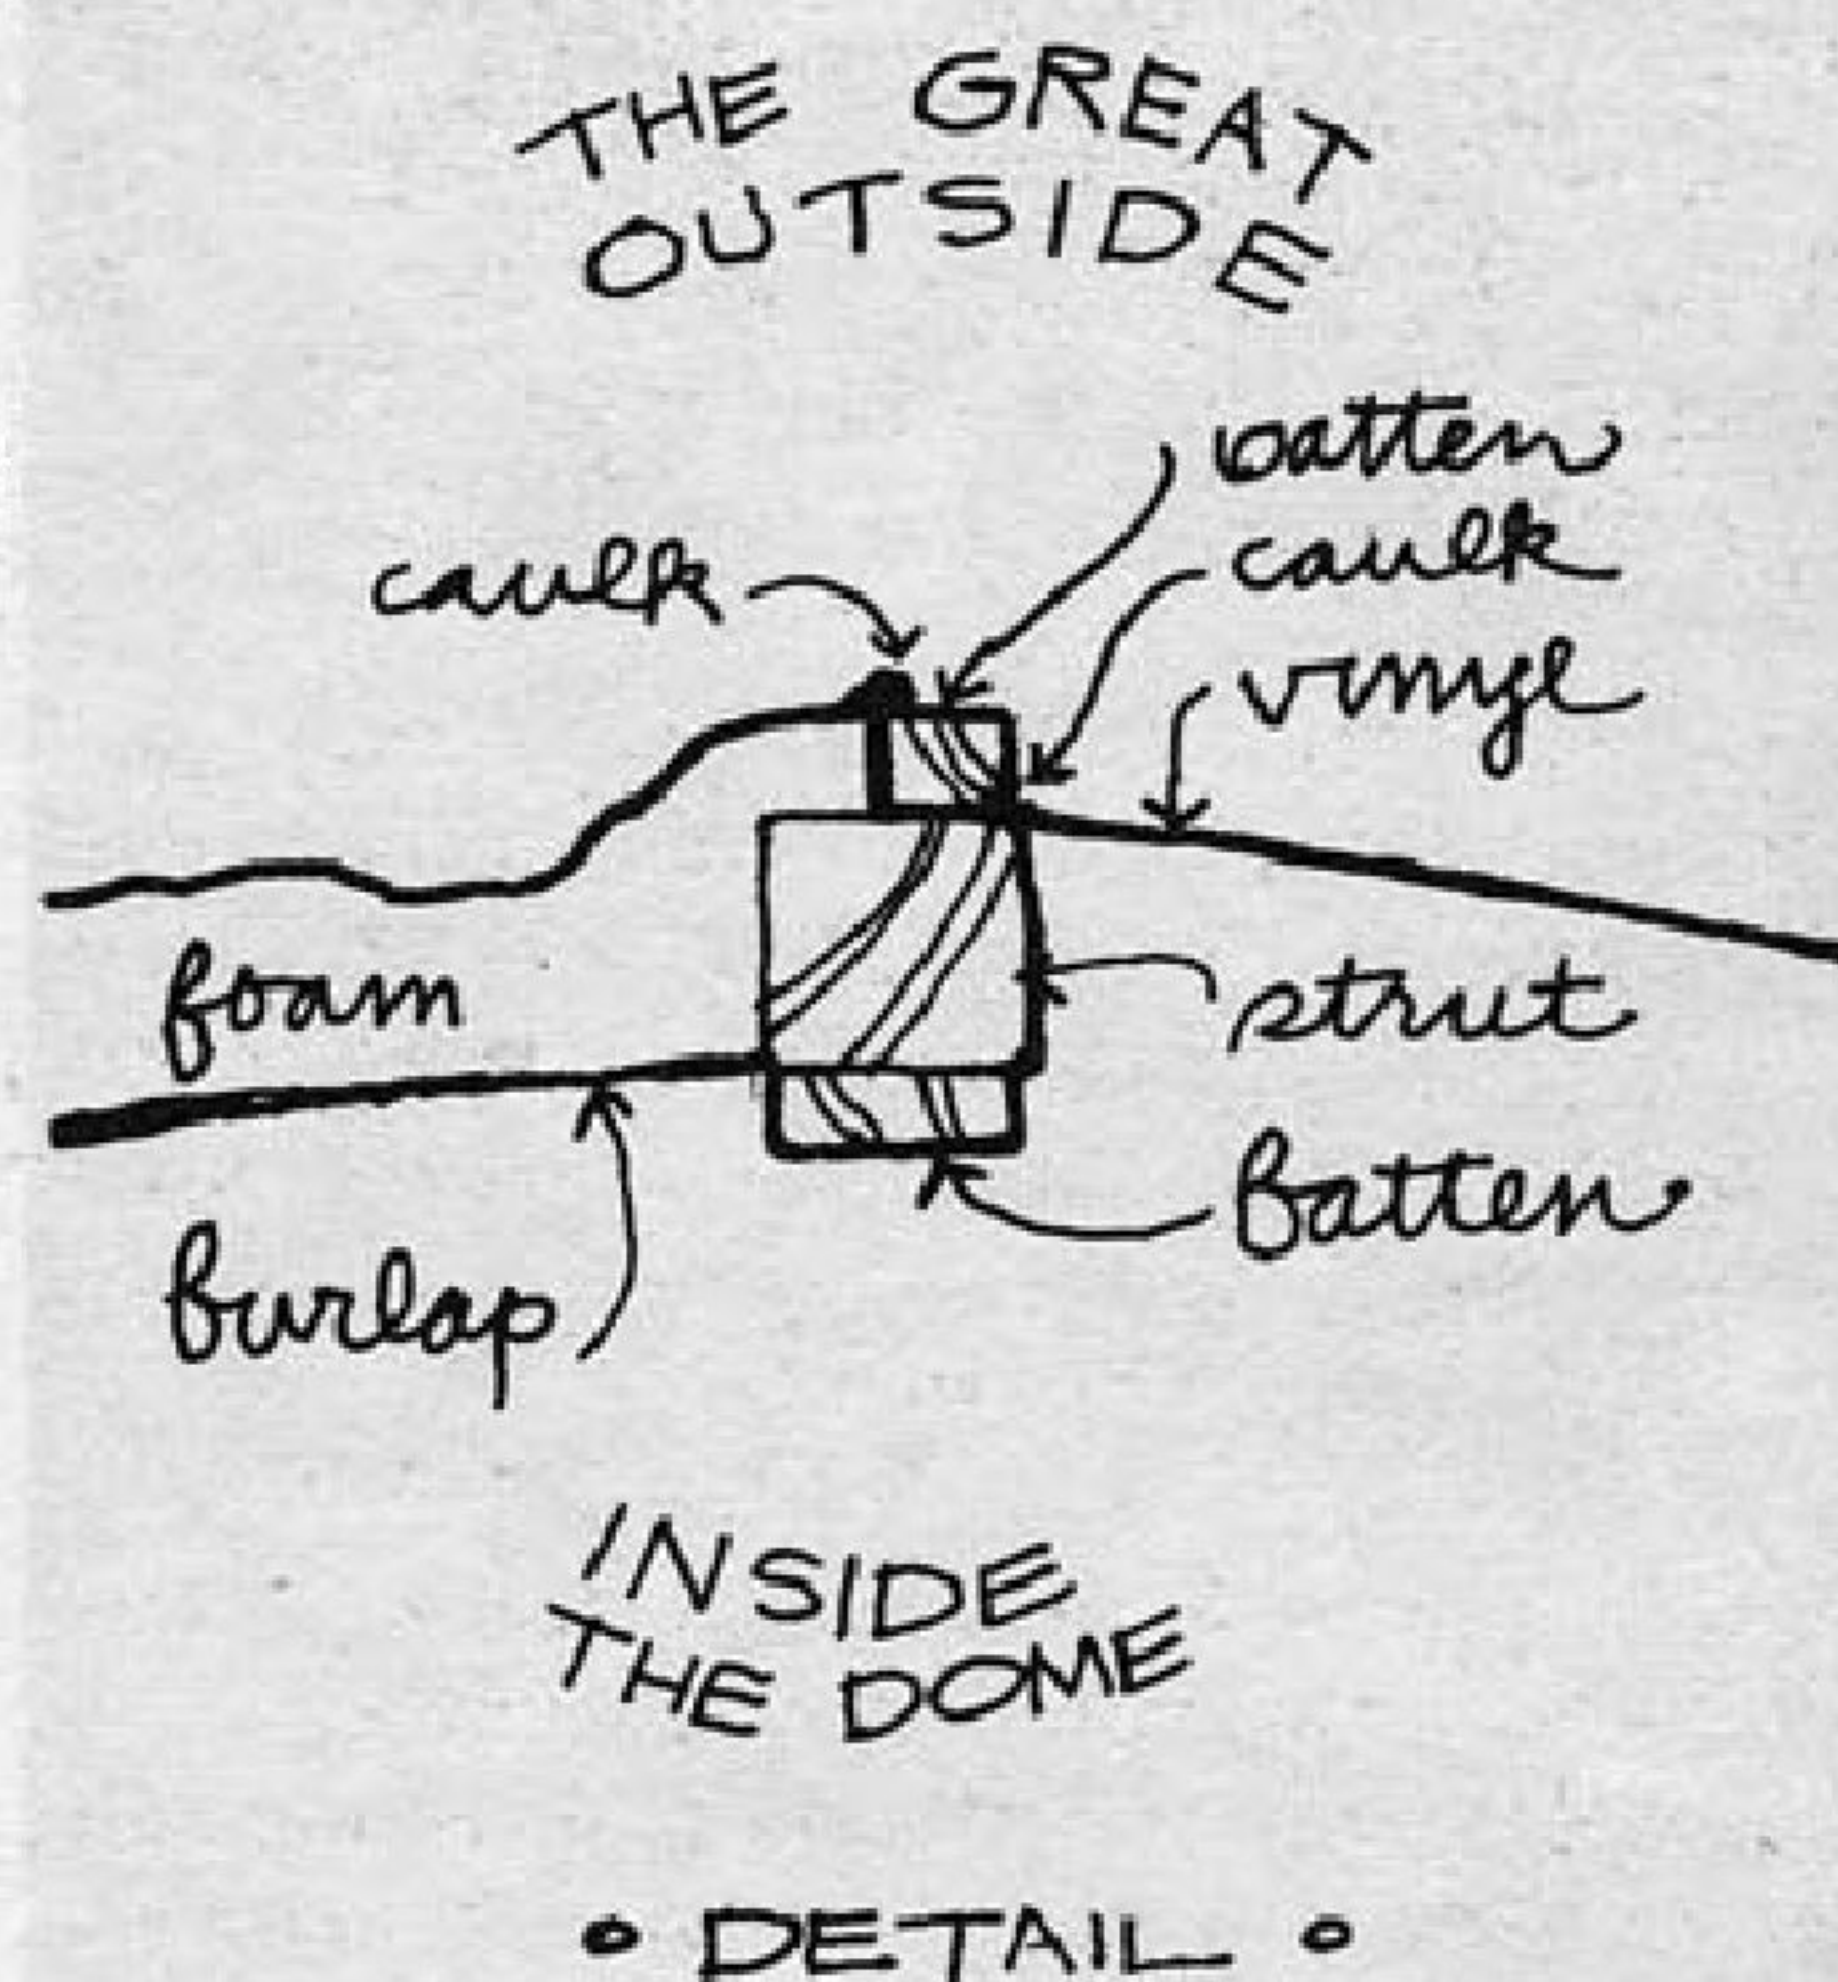 THE GREAT
OUTSIDE
batten
caulk
caulk
vinyl
foam
strut
batten
burlap
INSIDE
THE DOME
• DETAIL •